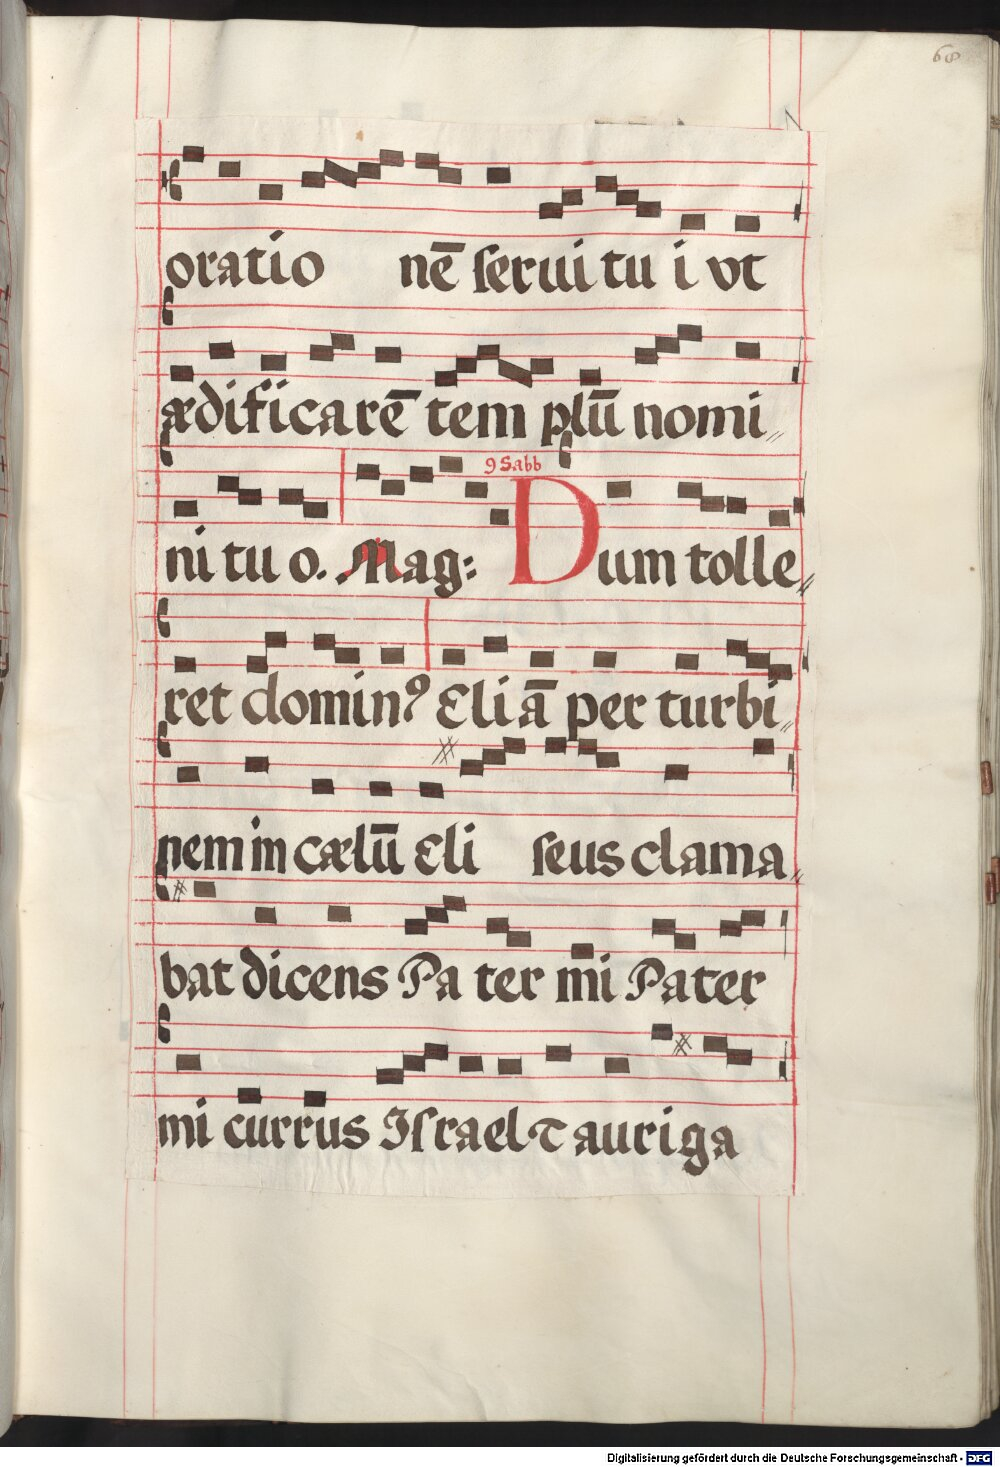 68
oratio nē ſerui tu i vt
ædificarē tem plū nomi
9 Sabb
ni tu o. Mag: Dum tolle
ret dominꝰ Eli ā per turbi
nem in cælū Eli ſeus clama
bat dicens Pa ter mi Pater
mi currus Iſrael ⁊ auriga
Digitalisierung gefördert durch die Deutsche Forschungsgemeinschaft - DFG